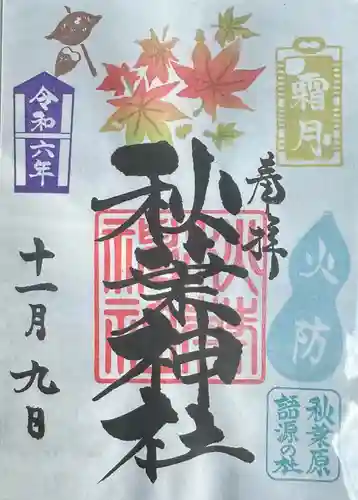 霜月
奉拝
火防
秋葉原
語源の社
秋葉神社
令和六年
十一月九日